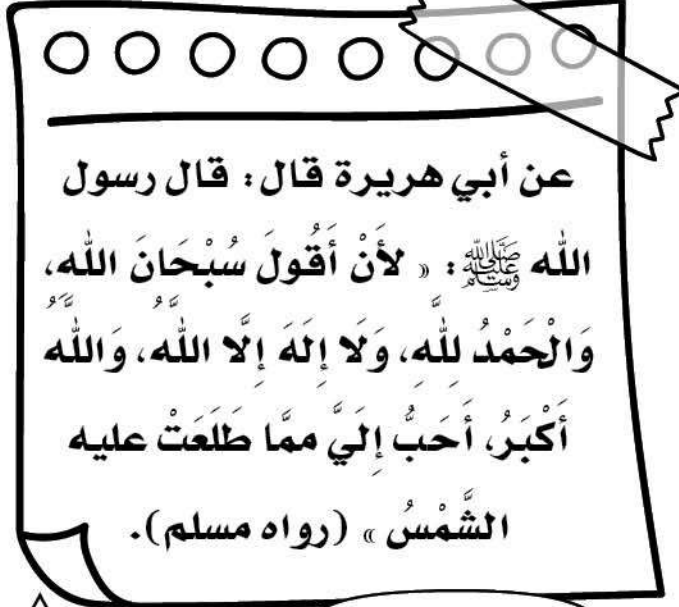 عن أبي هريرة قال: قال رسول
الله ﷺ: « لأَنْ أَقُولَ سُبْحَانَ اللهِ،
وَالْحَمْدُ لِلَّهِ، وَلَا إِلَهَ إِلَّا اللَّهُ، وَاللَّهُ
أَكْبَرُ، أَحَبُّ إِلَيَّ ممَّا طَلَعَتْ عليه
الشَّمْسُ » (رواه مسلم).